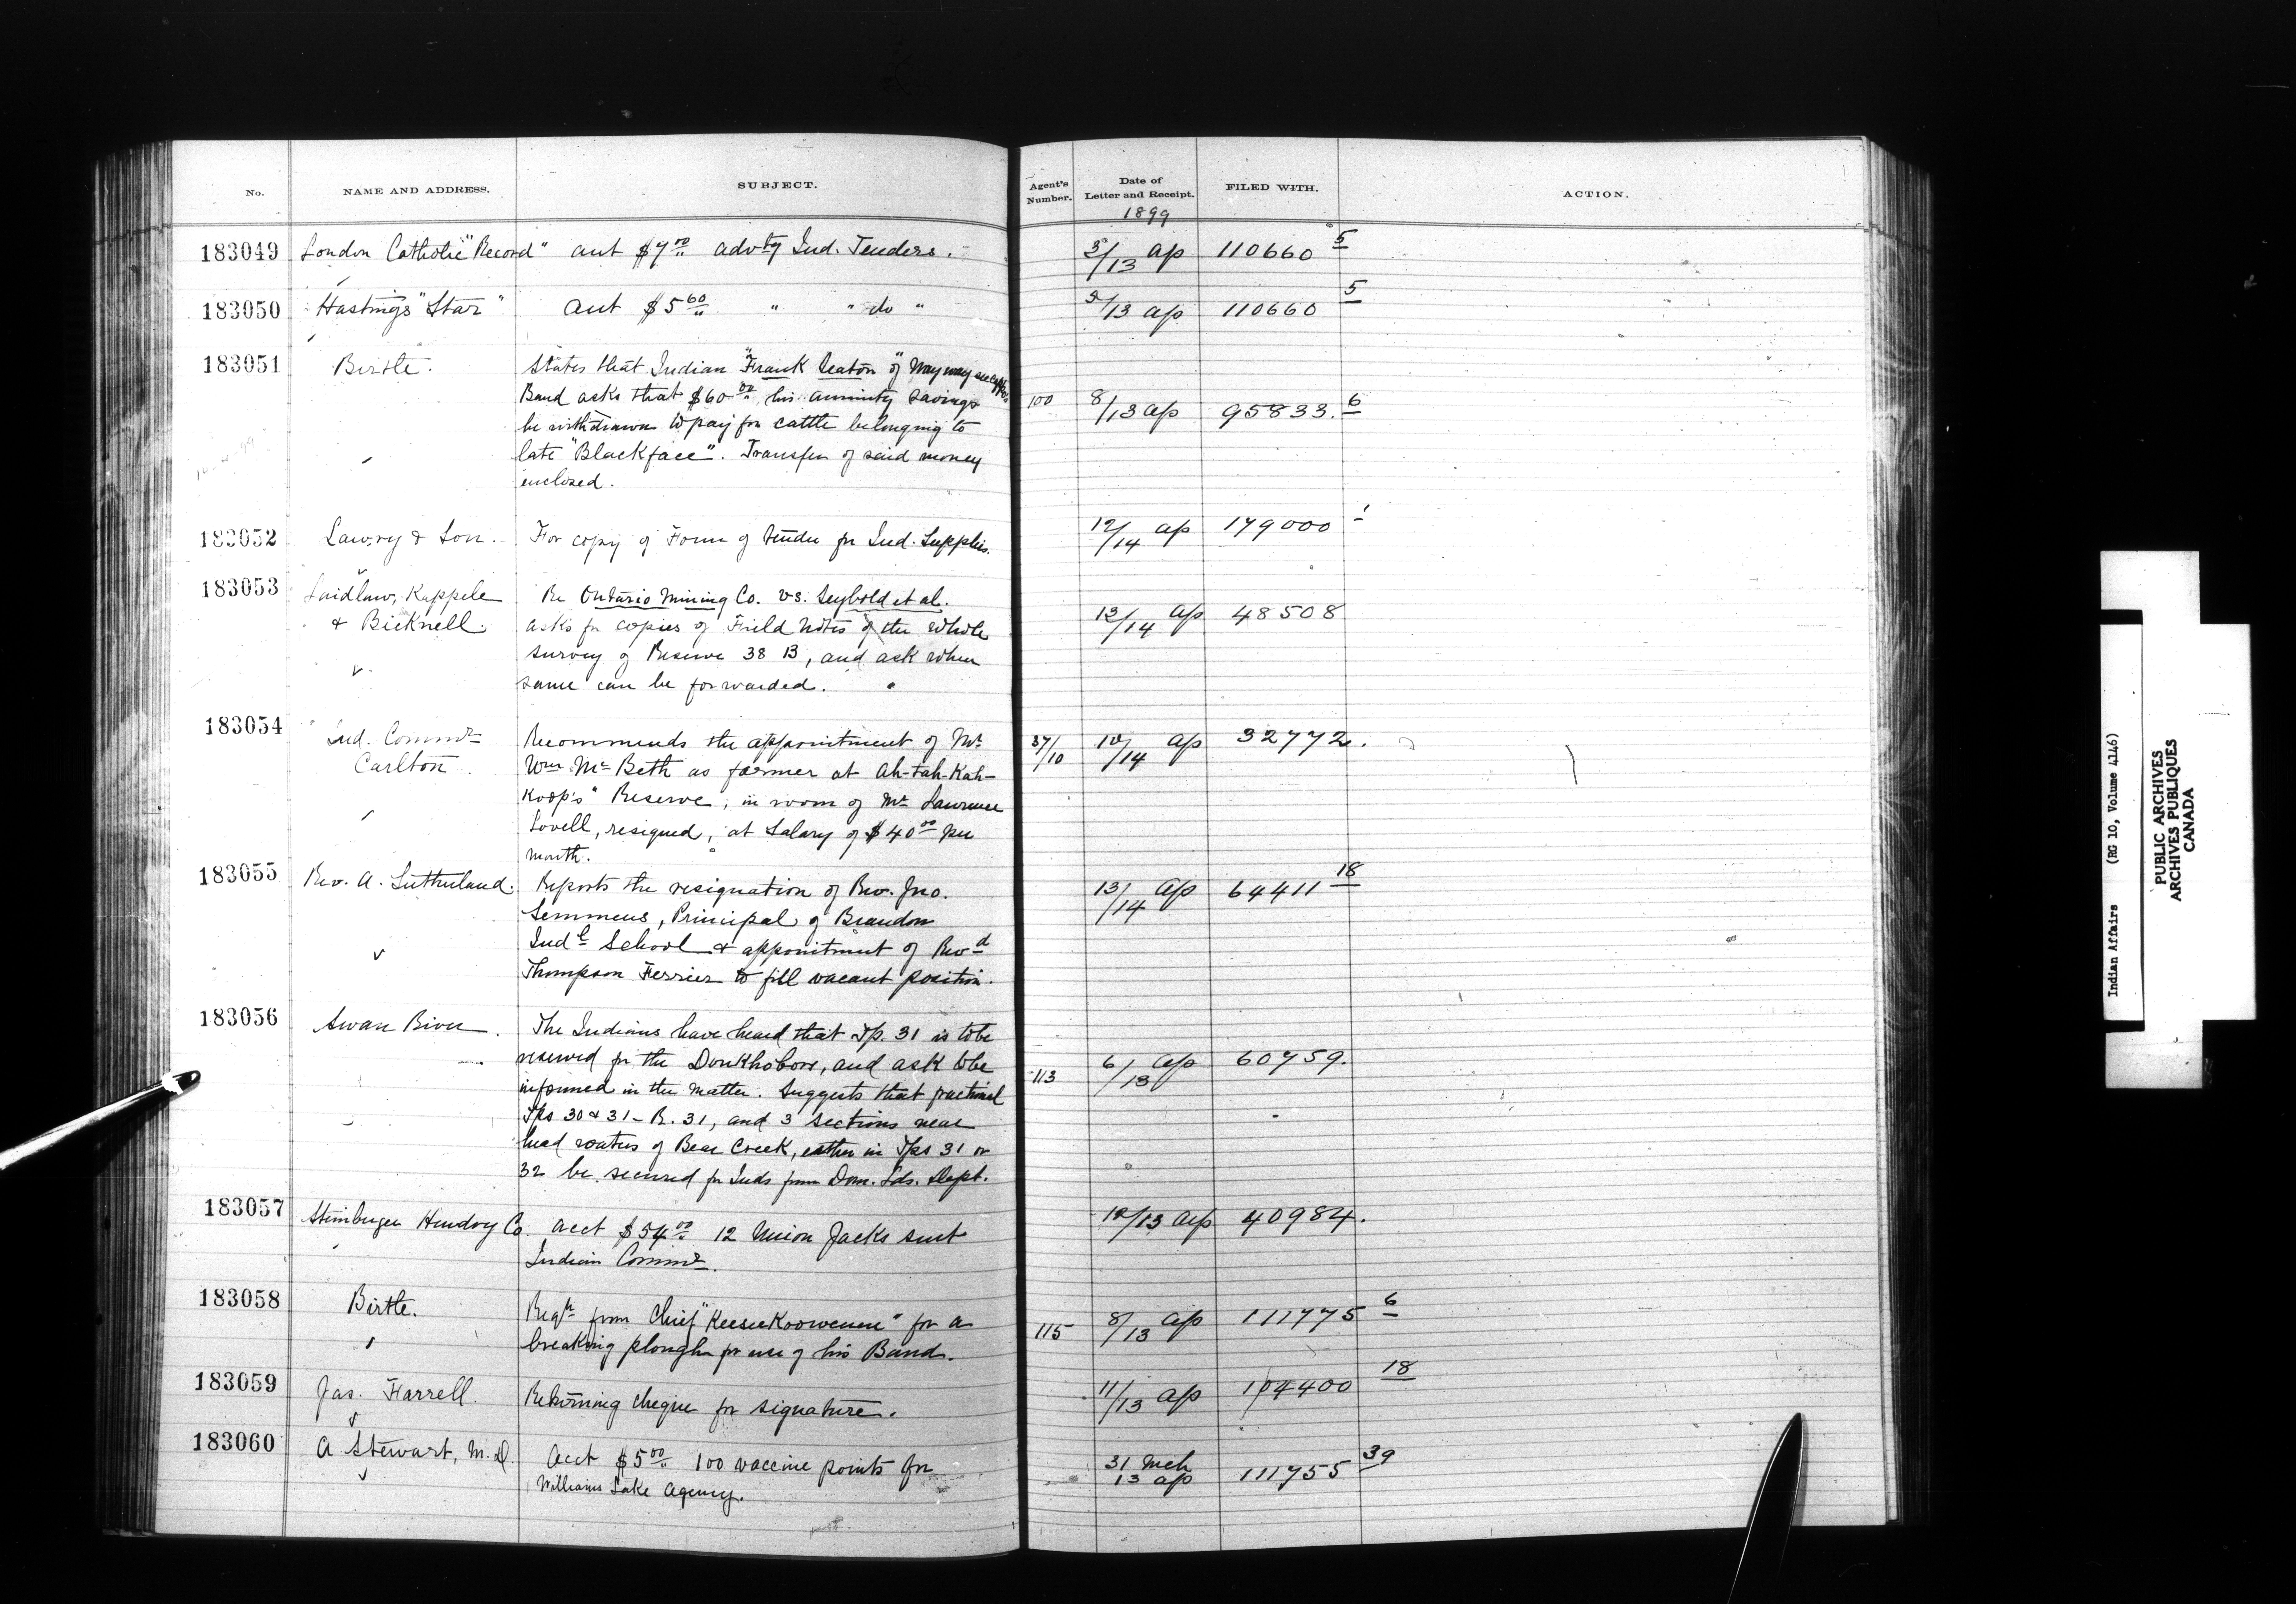 No. NAME AND ADDRESS. SUBJECT. Agent's Number. Date of Letter and Receipt. FILED WITH. ACTION.
1899
183049 London Catholic "Record" acct $7.00 advtg Ind. Tenders. 3/13 ap 110660 5
183050 Hastings "Star" acct $5.60 " " do " 5/13 ap 110660 5
183051 Birtle. States that Indian "Frank Seaton" of Way way seecappo's
Band asks that $60.00 his annuity savings 100 8/13 ap 95833. 6
be withdrawn to pay for cattle belonging to
late "Blackface". Transfer of said money
enclosed.
183052 Lawry & Son. For copy of Form of tender for Ind. Supplies. 12/14 ap 179000 1
183053 Laidlaw, Kappele Re Ontario Mining Co. vs. Seybold et al.
& Bicknell. asks for copies of Field Notes of the whole 13/14 ap 48508
survey of Reserve 38 B, and ask when
same can be forwarded.
183054 Ind. Commr Recommends the appointment of Mr 37/10 10/14 ap 32772.
Carlton. Wm McBeth as farmer at Ah-tah-Kah-
Koop's" Reserve, in room of Mr Lawrence
Lovell, resigned, at Salary of $40.00 per
month.
183055 Rev. A. Sutherland. Reports the resignation of Rev. Jno. 13/14 ap 64411 18
Semmens, Principal of Brandon
Indl School & appointment of Revd
Thompson Ferrier to fill vacant position.
183056 Swan River. The Indians have heard that Tp. 31 is to be
reserved for the Doukhobors, and ask to be 113 6/13 ap 60759.
informed in the matter. Suggests that fractional
Tps 30 & 31 - R. 31, and 3 sections near
head waters of Bear Creek, either in Tps 31 or
32 be secured for Inds from Dom. Lds. Dept.
183057 Steinberger Hendry Co. acct $54.00 12 Union Jacks sent 12/13 ap 40984.
Indian Commr.
183058 Birtle. Reqn from Chief "KeeseeKoowenin" for a 115 8/13 ap 111775 6
breaking plough for use of his Band.
183059 Jas. Farrell. Returning cheque for signature. 11/13 ap 104400 18
183060 A Stewart, M.D. acct $5.00 100 vaccine points for 31 Mch 13 ap 111755 39
Williams Lake Agency.
Indian Affairs (RG 10, Volume 4146)
PUBLIC ARCHIVES
ARCHIVES PUBLIQUES
CANADA